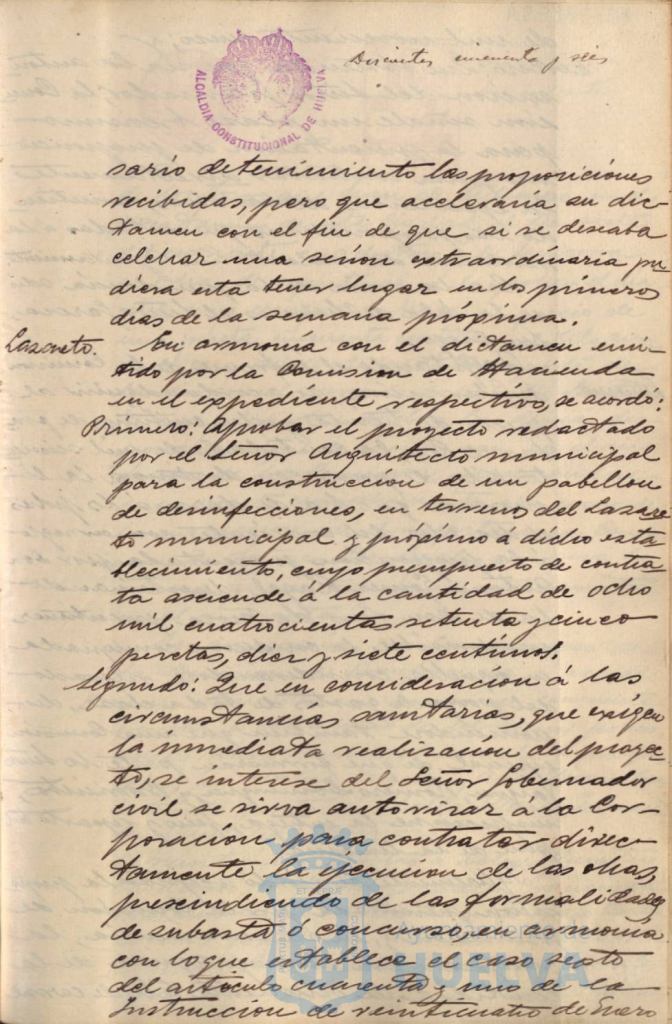 Doscientos cincuenta y seis
ALCALDIA CONSTITUCIONAL DE HUELVA
sario detenimiento las proposiciones
recibidas, pero que aceleraría su dic-
tamen con el fin de que si se deseaba
celebrar una sesión extraordinaria pu-
diera esta tener lugar en los primeros
días de la semana próxima.
Lazareto.
En armonía con el dictamen emi-
tido por la Comision de Hacienda
en el expediente respectivo, se acordó:
Primero: Aprobar el proyecto redactado
por el Señor Arquitecto municipal
para la construcción de un pabellon
de desinfecciones, en terrenos del Lazare-
to municipal y próximo á dicho esta-
blecimiento, cuyo presupuesto de contra-
ta asciende á la cantidad de ocho
mil cuatrocientas setenta y cinco
pesetas, diez y siete centimos.
Segundo: Que en consideración á las
circunstancias sanitarias, que exigen
la inmediata realización del proyec-
to, se interese del Señor Gobernador
civil se sirva autorizar á la Cor-
poración para contratar direc-
tamente la ejecucion de las obras,
prescindiendo de las formalidades
de subasta ó concurso, en armonía
con lo que establece el caso sexto
del artículo cuarenta y uno de la
Instruccion de veinticuatro de Enero
Ayuntamiento de
HUELVA